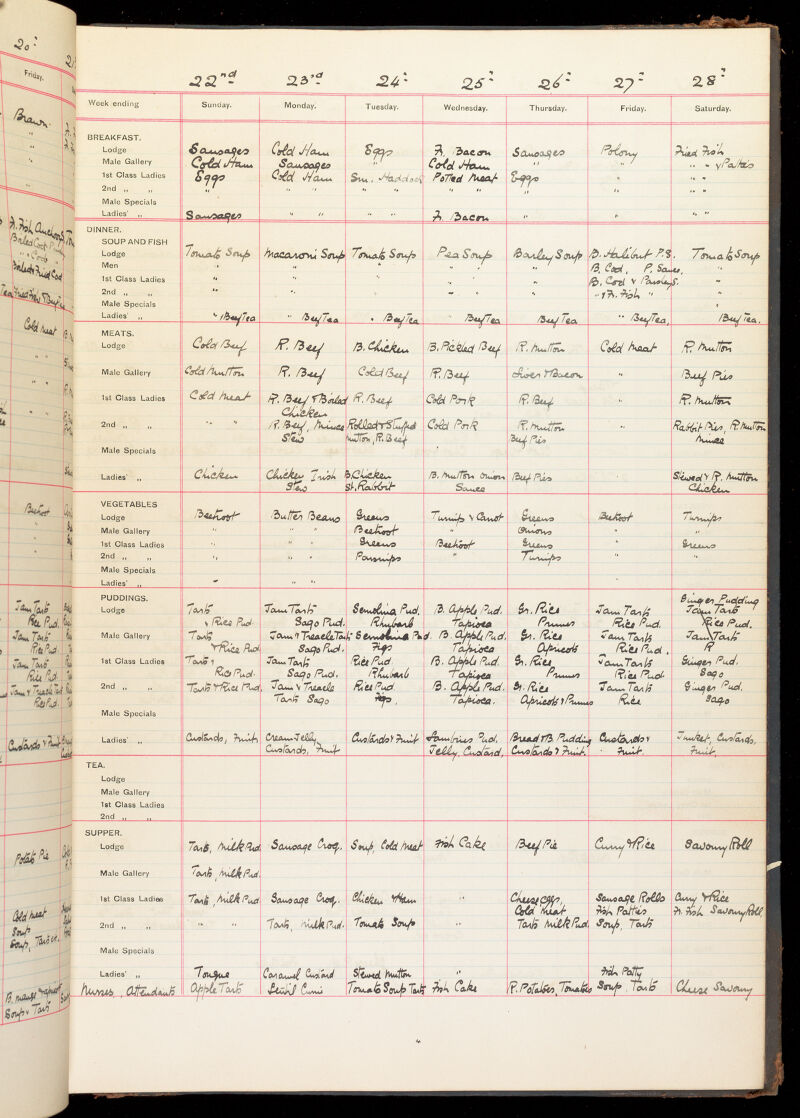 20th
Friday.
Brawn
Cold Meat
Beetroot
Jam Tarts
Rice Pud.
Jam Tarts
Rice Pud
Jam Tarts
Rice Pud.
Jam & Treacle
Rice Pud.
Custards & Fruit
Potato Pie
Cold Meat
Soup
Soup, Tarts
Soup & Tart
22nd 23rd 24th 25th 26th 27th 28th
Week ending Sunday. Monday. Tuesday. Wednesday. Thursday. Friday. Saturday.
BREAKFAST.
Lodge Sausages Cold Ham Eggs F. Bacon Sausages Polony Fried Fish
Male Gallery Cold Ham Sausages " Cold Ham " " " & Patties
1st Class Ladies Eggs Cold Ham Sm. Haddock Potted Meat Eggs " " "
2nd " " " " " " " " " " " " " "
Male Specials
Ladies' " Sausages " " " " F. Bacon " " " "
DINNER.
SOUP AND FISH
Lodge Tomato Soup Macaroni Soup Tomato Soup Pea Soup Barley Soup B. Halibut P.S. Tomato Soup
Men " " " " " " B. Cod, P. Sauce, "
1st Class Ladies " " " " " " B. Cod & Parsley S. "
2nd " " " " " " " " " & F. Fish " "
Male Specials
Ladies' " " & Beef Tea " Beef Tea " Beef Tea " Beef Tea Beef Tea " Beef Tea, Beef Tea.
MEATS.
Lodge Cold Beef R. Beef B. Chicken B. Pickled Beef R. Mutton Cold Meat R. Mutton
Male Gallery Cold Mutton R. Beef Cold Beef R. Beef Liver & Bacon " Beef Pies
1st Class Ladies Cold Meat R. Beef & Boiled R. Beef Cold Pork R. Beef " R. Mutton
Chicken
2nd " " " " R. Beef, Mince Rolled & Stuffed Cold Pork R. Mutton Rabbit Pies, R. Mutton
Stew Mutton, R. Beef Beef Pies Mince
Male Specials
Ladies' " Chicken Chicken Irish B. Chicken B. Mutton Onion Beef Pies Stewed & R. Mutton
Stew St. Rabbit Sauce Chicken
VEGETABLES
Lodge Beetroot Butter Beans Greens Turnips & Carrot Greens Beetroot Turnips
Male Gallery " " " " Beetroot " Onions " "
1st Class Ladies " " " Greens Beetroot Greens " Greens
2nd " " " " " Parsnips " Turnips " "
Male Specials
Ladies' " " " "
PUDDINGS.
Ginger Pudding
Lodge Tarts Jam Tarts Semolina Pud. B. Apple Pud. Gr. Rice Jam Tarts Jam Tarts
& Rice Pud Sago Pud. Rhubarb Tapioca Prunes Rice Pud. Rice Pud.
Male Gallery Tarts Jam & Treacle Tarts Semolina Pud B. Apple Pud. Gr. Rice Jam Tarts Jam Tarts
& Rice Pud Sago Pud. Figs Tapioca Apricots Rice Pud. R
1st Class Ladies Tarts & Jam Tarts Rice Pud. B. Apple Pud. Gr. Rice Jam Tarts Ginger Pud.
Rice Pud. Sago Pud. Rhubarb Tapioca Prunes Rice Pud Sago
2nd " " Tarts & Rice Pud. Jam & Treacle Rice Pud B. Apple Pud. Gr. Rice Jam Tarts Ginger Pud.
Tarts Sago Figs, Tapioca. Apricots & Prunes Rice Sago
Male Specials
Ladies' " Custards, Fruit Cream Jelly Custards & Fruit Pud. Bread & B. Pudding Custards & Junket, Custards,
Custards, Fruit Jelly, Custard, Custards & Fruit. Fruit. Fruit.
TEA.
Lodge
Male Gallery
1st Class Ladies
2nd " "
SUPPER.
Lodge Tarts, Milk Pud Sausage Croq. Soup, Cold Meat Fish Cake Beef Pie Curry & Rice Savoury Roll
Male Gallery Tarts, Milk Pud.
1st Class Ladies Tarts, Milk Pud Sausage Croq. Chicken & Ham " Cheese Sausage Rolls Curry & Rice
Cold Meat Fish Patties F. Fish Savoury Roll
2nd " " " " Tarts, Milk Pud. Tomato Soup " Tarts Milk Pud. Soup, Tarts
Male Specials
Ladies' " Tongue Caramel Custard Stewed Mutton " Fish Patty
Nurses, Attendants Apple Tarts Tomato Soup Tarts Fish Cake R. Potatoes, Tomatoes Soup, Tarts Cheese Savoury